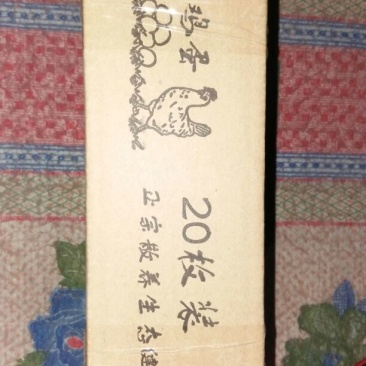 鸡蛋
20枚装
正宗散养生态健